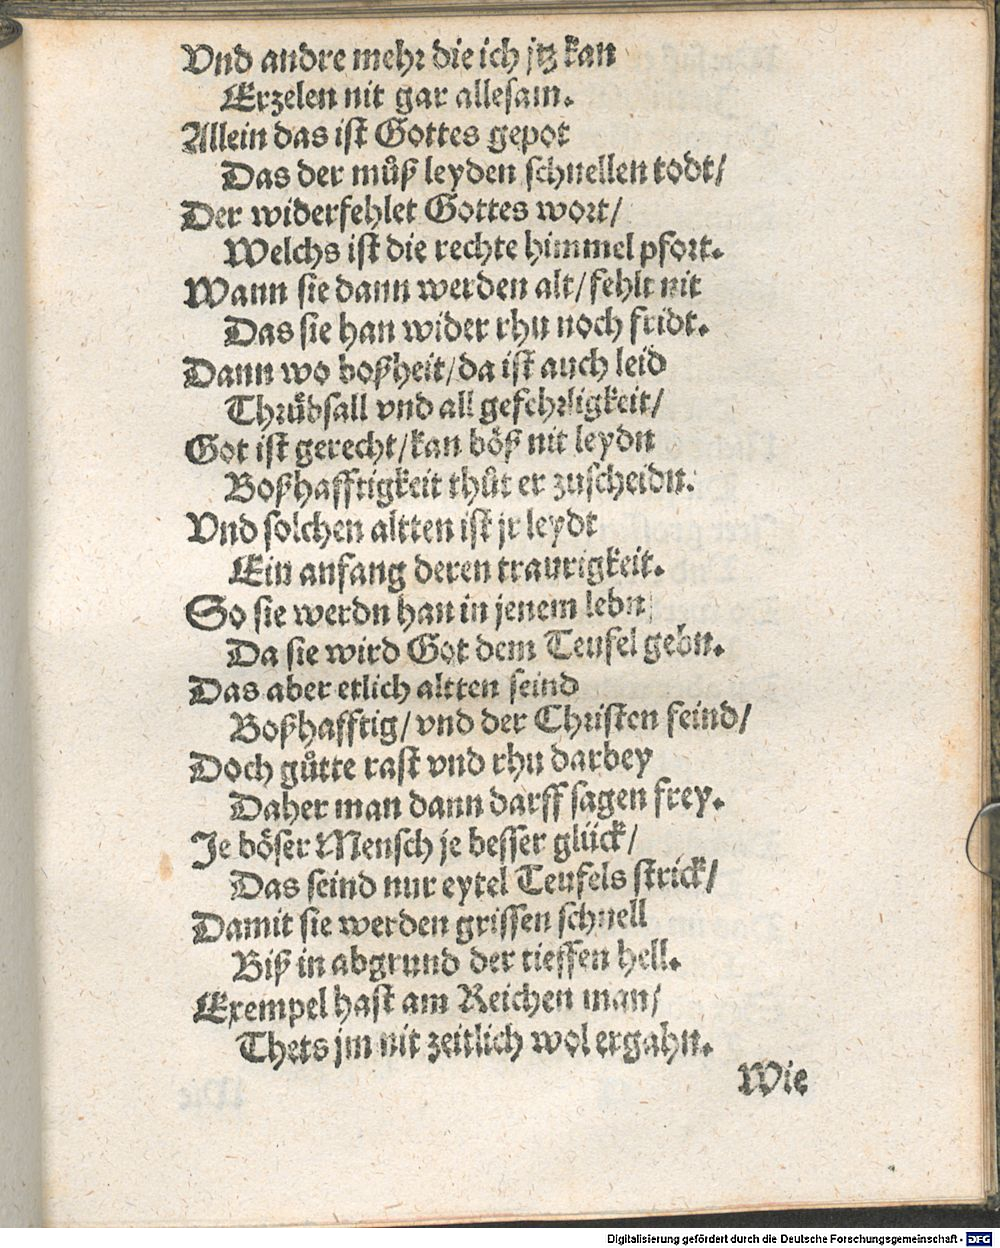 Vnd andre mehr die ich jtz kan
Erzelen nit gar allesam.
Allein das ist Gottes gepot
Das der můß leyden schnellen todt/
Der widerfehlet Gottes wort/
Welchs ist die rechte himmel pfort.
Wann sie dann werden alt/fehlt nit
Das sie han wider rhu noch fridt.
Dann wo boßheit/da ist auch leid
Thrůbsall vnd all gefehrligkeit/
Got ist gerecht/kan böß nit leydn
Boßhafftigkeit thůt er zuscheidn.
Vnd solchen altten ist jr leydt
Ein anfang deren traurigkeit.
So sie werdn han in jenem lebn
Da sie wird Got dem Teufel gebn.
Das aber etlich altten seind
Boßhafftig/vnd der Christen feind/
Doch gůtte rast vnd rhu darbey
Daher man dann darff sagen frey.
Je böser Mensch je besser glück/
Das seind nur eytel Teufels strick/
Damit sie werden grissen schnell
Biß in abgrund der tieffen hell.
Exempel hast am Reichen man/
Thets jm nit zeitlich wol ergahn.
Wie
Digitalisierung gefördert durch die Deutsche Forschungsgemeinschaft - DFG